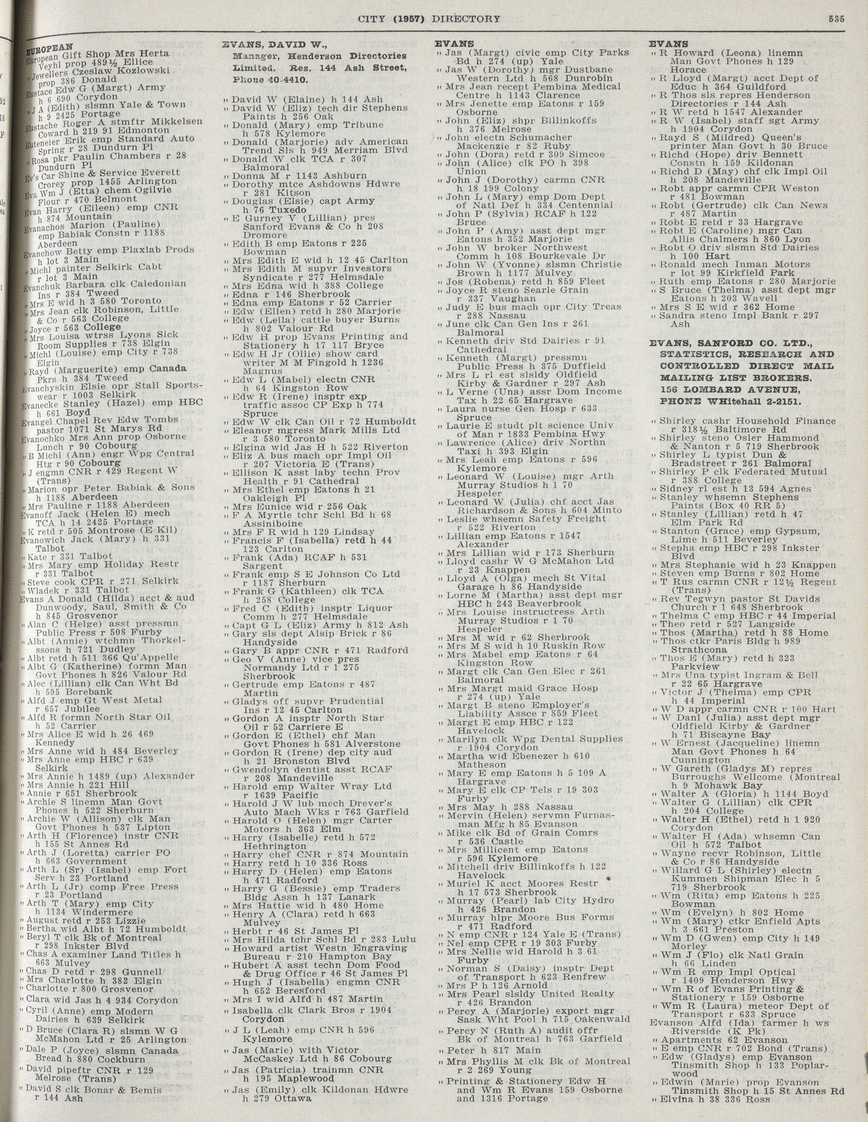 CITY (1957) DIRECTORY
535
EUROPEAN
European Gift Shop Mrs Herta
Veyhl prop 489½ Ellice
" Jewellers Czeslaw Kozlowski
prop 386 Donald
Eustace Edw G (Margt) Army
h 6 690 Corydon
" J A (Edith) slsmn Yale & Town
h 9 2425 Portage
Eustache Roger A stmftr Mikkelsen
Coward h 219 91 Edmonton
Euteneier Erik emp Standard Auto
Spring r 28 Dundurn Pl
" Rosa pkr Paulin Chambers r 28
Dundurn Pl
Ev's Car Shine & Service Everett
Crorey prop 1455 Arlington
Eva Wm J (Etta) chem Ogilvie
Flour r 470 Belmont
Evan Harry (Eileen) emp CNR
h 874 Mountain
Evanachos Marion (Pauline)
emp Babiak Constn r 1188
Aberdeen
Evanchow Betty emp Plaxlab Prods
h lot 3 Main
" Michl painter Selkirk Cabt
r lot 3 Main
Evanchuk Barbara clk Caledonian
Ins r 384 Tweed
" Mrs E wid h 3 580 Toronto
" Mrs Jean clk Robinson, Little
& Co r 563 College
" Joyce r 563 College
" Mrs Louisa wtrss Lyons Sick
Room Supplies r 738 Elgin
" Michl (Louise) emp City r 738
Elgin
" Rayd (Marguerite) emp Canada
Pkrs h 384 Tweed
Evanchyskin Elsie opr Stall Sports-
wear r 1003 Selkirk
Evanecke Stanley (Hazel) emp HBC
h 661 Boyd
Evangel Chapel Rev Edw Tombs
pastor 1071 St Marys Rd
Evanochko Mrs Ann prop Osborne
Lunch r 90 Cobourg
" B Michl (Ann) engr Wpg Central
Htg r 90 Cobourg
" J engmn CNR r 429 Regent W
(Trans)
" Marion opr Peter Babiak & Sons
h 1188 Aberdeen
" Mrs Pauline r 1188 Aberdeen
Evanoff Jack (Helen E) mech
TCA h 14 2425 Portage
" K retd r 505 Montrose (E Kil)
Evanowich Jack (Mary) h 331
Talbot
" Kate r 331 Talbot
" Mrs Mary emp Holiday Restr
r 331 Talbot
" Steve cook CPR r 271 Selkirk
" Wladek r 331 Talbot
Evans A Donald (Hilda) acct & aud
Dunwoody, Saul, Smith & Co
h 845 Grosvenor
" Alan C (Helge) asst pressmn
Public Press r 508 Furby
" Albt (Annie) wtchmn Thorkel-
ssons h 721 Dudley
" Albt retd h 511 366 Qu'Appelle
" Albt G (Katherine) formn Man
Govt Phones h 826 Valour Rd
" Alec (Lillian) clk Can Wht Bd
h 595 Borebank
" Alfd J emp Gt West Metal
r 657 Jubilee
" Alfd R formn North Star Oil
h 52 Carrier
" Mrs Alice E wid h 26 469
Kennedy
" Mrs Anne wid h 484 Beverley
" Mrs Anne emp HBC r 639
Selkirk
" Mrs Annie h 1489 (up) Alexander
" Mrs Annie h 221 Hill
" Annie r 651 Sherbrook
" Archie S linemn Man Govt
Phones h 522 Sherburn
" Archie W (Allison) clk Man
Govt Phones h 537 Lipton
" Arth H (Florence) instr CNR
h 155 St Annes Rd
" Arth J (Loretta) carrier PO
h 663 Government
" Arth L (Sr) (Isabella) emp Fort
Serv h 23 Portland
" Arth L (Jr) comp Free Press
r 23 Portland
" Arth T (Mary) emp City
h 1134 Windermere
" August retd r 253 Lizzie
" Bertha wid Albt h 72 Humboldt
" Beryl T clk Bk of Montreal
r 298 Inkster Blvd
" Chas A examiner Land Titles h
663 Mulvey
" Chas D retd r 298 Gunnell
" Mrs Charlotte h 382 Elgin
" Charlotte r 800 Grosvenor
" Clara wid Jas h 4 934 Corydon
" Cyril (Anne) emp Modern
Dairies h 639 Selkirk
" D Bruce (Clara R) slsmn W G
McMahon Ltd r 25 Arlington
" Dale P (Joyce) slsmn Canada
Bread h 880 Cockburn
" David pipeftr CNR r 129
Melrose (Trans)
" David S clk Bonar & Bemis
r 144 Ash
EVANS, DAVID W.,
Manager, Henderson Directories
Limited. Res. 144 Ash Street,
Phone 40-4410.
" David W (Elaine) h 144 Ash
" David W (Eliz) tech dir Stephens
Paints h 256 Oak
" Donald (Mary) emp Tribune
h 578 Kylemore
" Donald (Marjorie) adv American
Trend Sls h 949 Merriam Blvd
" Donald W clk TCA r 307
Balmoral
" Donna M r 1143 Ashburn
" Dorothy mtce Ashdowns Hdwre
r 281 Kitson
" Douglas (Elsie) capt Army
h 76 Tuxedo
" E Gurney V (Lillian) pres
Sanford Evans & Co h 208
Dromore
" Edith B emp Eatons r 225
Bowman
" Mrs Edith E wid h 12 45 Carlton
" Mrs Edith M supvr Investors
Syndicate r 277 Helmsdale
" Mrs Edna wid h 388 College
" Edna r 146 Sherbrook
" Edna emp Eatons r 52 Carrier
" Edw (Ellen) retd h 280 Marjorie
" Edw (Leila) cattle buyer Burns
h 802 Valour Rd
" Edw H prop Evans Printing and
Stationery h 17 177 Bryce
" Edw H Jr (Ollie) show card
writer M M Fingold h 1236
Magnus
" Edw L (Mabel) electn CNR
h 64 Kingston Row
" Edw R (Irene) insptr exp
traffic assoc CP Exp h 774
Spruce
" Edw W clk Can Oil r 72 Humboldt
" Eleanor mgress Mark Mills Ltd
r 3 580 Toronto
" Elgina wid Jas H h 522 Riverton
" Eliz A bus mach opr Impl Oil
r 207 Victoria E (Trans)
" Ellison K asst laby techn Prov
Health r 91 Cathedral
" Mrs Ethel emp Eatons h 21
Oakleigh Pl
" Mrs Eunice wid r 256 Oak
" F A Myrtle tchr Schl Bd h 68
Assiniboine
" Mrs F R wid h 129 Lindsay
" Francis F (Isabella) retd h 44
123 Carlton
" Frank (Ada) RCAF h 531
Sargent
" Frank emp S E Johnson Co Ltd
r 1187 Sherburn
" Frank G (Kathleen) clk TCA
h 258 College
" Fred C (Edith) insptr Liquor
Comm h 277 Helmsdale
" Capt G L (Eliz) Army h 812 Ash
" Gary sls dept Alsip Brick r 86
Handyside
" Gary B appr CNR r 471 Radford
" Geo V (Anne) vice pres
Normandy Ltd r 1 275
Sherbrook
" Gertrude emp Eatons r 487
Martin
" Gladys off supvr Prudential
Ins r 12 45 Carlton
" Gordon A insptr North Star
Oil r 52 Carriere E
" Gordon E (Ethel) chf Man
Govt Phones h 581 Alverstone
" Gordon R (Irene) dep city aud
h 21 Bronston Blvd
" Gwendolyn dentist asst RCAF
r 208 Mandeville
" Harold emp Walter Wray Ltd
r 1639 Pacific
" Harold J W lub mech Drever's
Auto Mach Wks r 763 Garfield
" Harold O (Helen) mgr Carter
Motors h 363 Elm
" Harry (Isabelle) retd h 572
Hethrington
" Harry chef CNR r 874 Mountain
" Harry retd h 10 336 Ross
" Harry D (Helen) emp Eatons
h 471 Radford
" Harry G (Bessie) emp Traders
Bldg Assn h 137 Lanark
" Mrs Hattie wid h 480 Home
" Henry A (Clara) retd h 663
Mulvey
" Herbt r 46 St James Pl
" Mrs Hilda tchr Schl Bd r 283 Lulu
" Howard artist Westn Engraving
Bureau r 210 Hampton Bay
" Hubert A asst techn Dom Food
& Drug Office r 46 St James Pl
" Hugh J (Isabella) engmn CNR
h 652 Beresford
" Mrs I wid Alfd h 487 Martin
" Isabella clk Clark Bros r 1904
Corydon
" J L (Leah) emp CNR h 596
Kylemore
" Jas (Marie) with Victor
McCaskey Ltd h 86 Cobourg
" Jas (Patricia) trainmn CNR
h 195 Maplewood
" Jas (Emily) clk Kildonan Hdwre
h 279 Ottawa
EVANS
" Jas (Margt) civic emp City Parks
Bd h 274 (up) Yale
" Jas W (Dorothy) mgr Dustbane
Western Ltd h 568 Dunrobin
" Mrs Jean recept Pembina Medical
Centre h 1143 Clarence
" Mrs Jenette emp Eatons r 159
Osborne
" John (Eliz) shpr Billinkoffs
h 376 Melrose
" John electn Schumacher
Mackenzie r 82 Ruby
" John (Dora) retd r 309 Simcoe
" John (Alice) clk PO h 398
Union
" John J (Dorothy) carmn CNR
h 18 199 Colony
" John L (Mary) emp Dom Dept
of Natl Def h 334 Centennial
" John P (Sylvia) RCAF h 122
Bruce
" John P (Amy) asst dept mgr
Eatons h 352 Marjorie
" John W broker Northwest
Comm h 108 Bourkevale Dr
" John W (Yvonne) slsmn Christie
Brown h 1177 Mulvey
" Jos (Robena) retd h 859 Fleet
" Joyce R steno Searle Grain
r 337 Vaughan
" Judy E bus mach opr City Treas
r 288 Nassau
" June clk Can Gen Ins r 261
Balmoral
" Kenneth driv Std Dairies r 91
Cathedral
" Kenneth (Margt) pressmn
Public Press h 375 Duffield
" Mrs L rl est slsldy Oldfield
Kirby & Gardner r 297 Ash
" L Verne (Una) assr Dom Income
Tax h 22 65 Hargrave
" Laura nurse Gen Hosp r 633
Spruce
" Laurie E studt plt science Univ
of Man r 1833 Pembina Hwy
" Lawrence (Alice) driv Northn
Taxi h 393 Elgin
" Mrs Leah emp Eatons r 596
Kylemore
" Leonard W (Louise) mgr Arth
Murray Studios h 1 70
Hespeler
" Leonard W (Julia) chf acct Jas
Richardson & Sons h 604 Minto
" Leslie whsemn Safety Freight
r 522 Riverton
" Lillian emp Eatons r 1547
Alexander
" Mrs Lillian wid r 173 Sherburn
" Lloyd cashr W G McMahon Ltd
r 23 Knappen
" Lloyd A (Olga) mech St Vital
Garage h 86 Handyside
" Lorne M (Martha) asst dept mgr
HBC h 243 Beaverbrook
" Mrs Louise instructress Arth
Murray Studios r 1 70
Hespeler
" Mrs M wid r 62 Sherbrook
" Mrs M S wid h 10 Ruskin Row
" Mrs Mabel emp Eatons r 64
Kingston Row
" Margt clk Can Gen Elec r 261
Balmoral
" Mrs Margt maid Grace Hosp
r 274 (up) Yale
" Margt B steno Employer's
Liability Assce r 859 Fleet
" Margt E emp HBC r 122
Havelock
" Marilyn clk Wpg Dental Supplies
r 1904 Corydon
" Martha wid Ebenezer h 610
Matheson
" Mary E emp Eatons h 5 109 A
Hargrave
" Mary E clk CP Tels r 19 303
Furby
" Mrs May h 288 Nassau
" Mervin (Helen) servmn Furnas-
man Mfg h 85 Evanson
" Mike clk Bd of Grain Comrs
r 536 Castle
" Mrs Millicent emp Eatons
r 596 Kylemore
" Mitchell driv Billinkoffs h 122
Havelock
" Muriel K acct Moores Restr
h 17 573 Sherbrook
" Murray (Pearl) lab City Hydro
h 426 Brandon
" Murray hlpr Moore Bus Forms
r 471 Radford
" N emp CNR r 124 Yale E (Trans)
" Nel emp CPR r 19 303 Furby
" Mrs Nellie wid Harold h 3 61
Furby
" Norman S (Daisy) insptr Dept
of Transport h 623 Renfrew
" Mrs P h 126 Arnold
" Mrs Pearl slsldy United Realty
r 426 Brandon
" Percy A (Marjorie) export mgr
Sask Wht Pool h 715 Oakenwald
" Percy N (Ruth A) audit offr
Bk of Montreal h 763 Garfield
" Peter h 817 Main
" Mrs Phyllis M clk Bk of Montreal
r 2 269 Young
" Printing & Stationery Edw H
and Wm R Evans 159 Osborne
and 1316 Portage
EVANS
" R Howard (Leona) linemn
Man Govt Phones h 129
Horace
" R Lloyd (Margt) acct Dept of
Educ h 364 Guildford
" R Thos sls repres Henderson
Directories r 144 Ash
" R W retd h 1547 Alexander
" R W (Isabel) staff sgt Army
h 1904 Corydon
" Rayd S (Mildred) Queen's
printer Man Govt h 30 Bruce
" Richd (Hope) driv Bennett
Constn h 159 Kildonan
" Richd D (May) chf clk Impl Oil
h 208 Mandeville
" Robt appr carmn CPR Weston
r 481 Bowman
" Robt (Gertrude) clk Can News
r 487 Martin
" Robt E retd r 33 Hargrave
" Robt E (Caroline) mgr Can
Allis Chalmers h 860 Lyon
" Robt O driv slsmn Std Dairies
h 100 Hart
" Ronald mech Inman Motors
r lot 99 Kirkfield Park
" Ruth emp Eatons r 280 Marjorie
" S Bruce (Thelma) asst dept mgr
Eatons h 203 Wavell
" Mrs S E wid r 362 Home
" Sandra steno Impl Bank r 297
Ash
EVANS, SANFORD CO. LTD.,
STATISTICS, RESEARCH AND
CONTROLLED DIRECT MAIL
MAILING LIST BROKERS.
156 LOMBARD AVENUE,
PHONE WHitehall 2-2151.
" Shirley cashr Household Finance
r 318½ Baltimore Rd
" Shirley steno Osler Hammond
& Nanton r 5 719 Sherbrook
" Shirley L typist Dun &
Bradstreet r 261 Balmoral
" Shirley P clk Federated Mutual
r 388 College
" Sidney rl est h 13 594 Agnes
" Stanley whsemn Stephens
Paints (Box 40 RR 5)
" Stanley (Lillian) retd h 47
Elm Park Rd
" Stanton (Grace) emp Gypsum,
Lime h 511 Beverley
" Stepha emp HBC r 298 Inkster
Blvd
" Mrs Stephanie wid h 23 Knappen
" Steven emp Burns r 802 Home
" T Rus carmn CNR r 12½ Regent
(Trans)
" Rev Tegwyn pastor St Davids
Church r 1 648 Sherbrook
" Thelma C emp HBC r 44 Imperial
" Theo retd r 527 Langside
" Thos (Martha) retd h 88 Home
" Thos ctkr Paris Bldg h 989
Strathcona
" Thos E (Mary) retd h 323
Parkview
" Mrs Una typist Ingram & Bell
r 22 65 Hargrave
" Victor J (Thelma) emp CPR
h 44 Imperial
" W D appr carmn CNR r 100 Hart
" W Danl (Julia) asst dept mgr
Oldfield Kirby & Gardner
h 71 Biscayne Bay
" W Ernest (Jacqueline) linemn
Man Govt Phones h 64
Cunnington
" W Gareth (Gladys M) repres
Burroughs Wellcome (Montreal
h 9 Mohawk Bay
" Walter A (Gloria) h 1144 Boyd
" Walter G (Lillian) clk CPR
h 204 College
" Walter H (Ethel) retd h 1 920
Corydon
" Walter H (Ada) whsemn Can
Oil h 572 Talbot
" Wayne recvr Robinson, Little
& Co r 86 Handyside
" Willard G L (Shirley) electn
Kummen Shipman Elec h 5
719 Sherbrook
" Wm (Rita) emp Eatons h 225
Bowman
" Wm (Evelyn) h 802 Home
" Wm (Mary) ctkr Enfield Apts
h 3 661 Preston
" Wm D (Gwen) emp City h 149
Morley
" Wm J (Flo) clk Natl Grain
h 66 Linden
" Wm R emp Impl Optical
r 1409 Henderson Hwy
" Wm R of Evans Printing &
Stationery r 159 Osborne
" Wm R (Laura) meteor Dept of
Transport r 633 Spruce
Evanson Alfd (Ida) farmer h ws
Riverside (K Pk)
" Apartments 62 Evanson
" E emp CNR r 702 Bond (Trans)
" Edw (Gladys) emp Evanson
Tinsmith Shop h 133 Poplar-
wood
" Edwin (Marie) prop Evanson
Tinsmith Shop h 15 St Annes Rd
" Elvina h 38 336 Ross